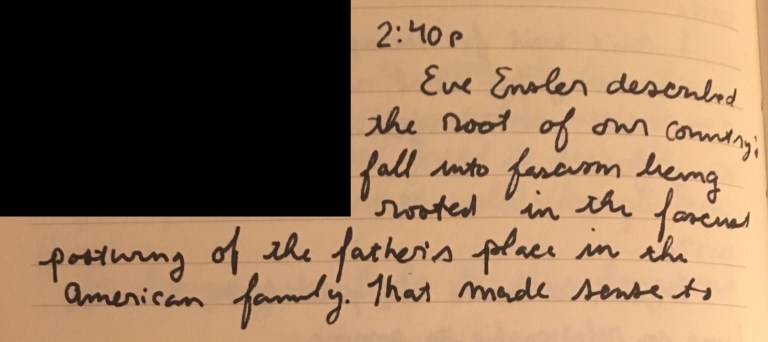 2:40p
Eve Ensler described
the root of our country's
fall into fascism being
rooted in the fascist
posturing of the father's place in the
American family. That made sense to